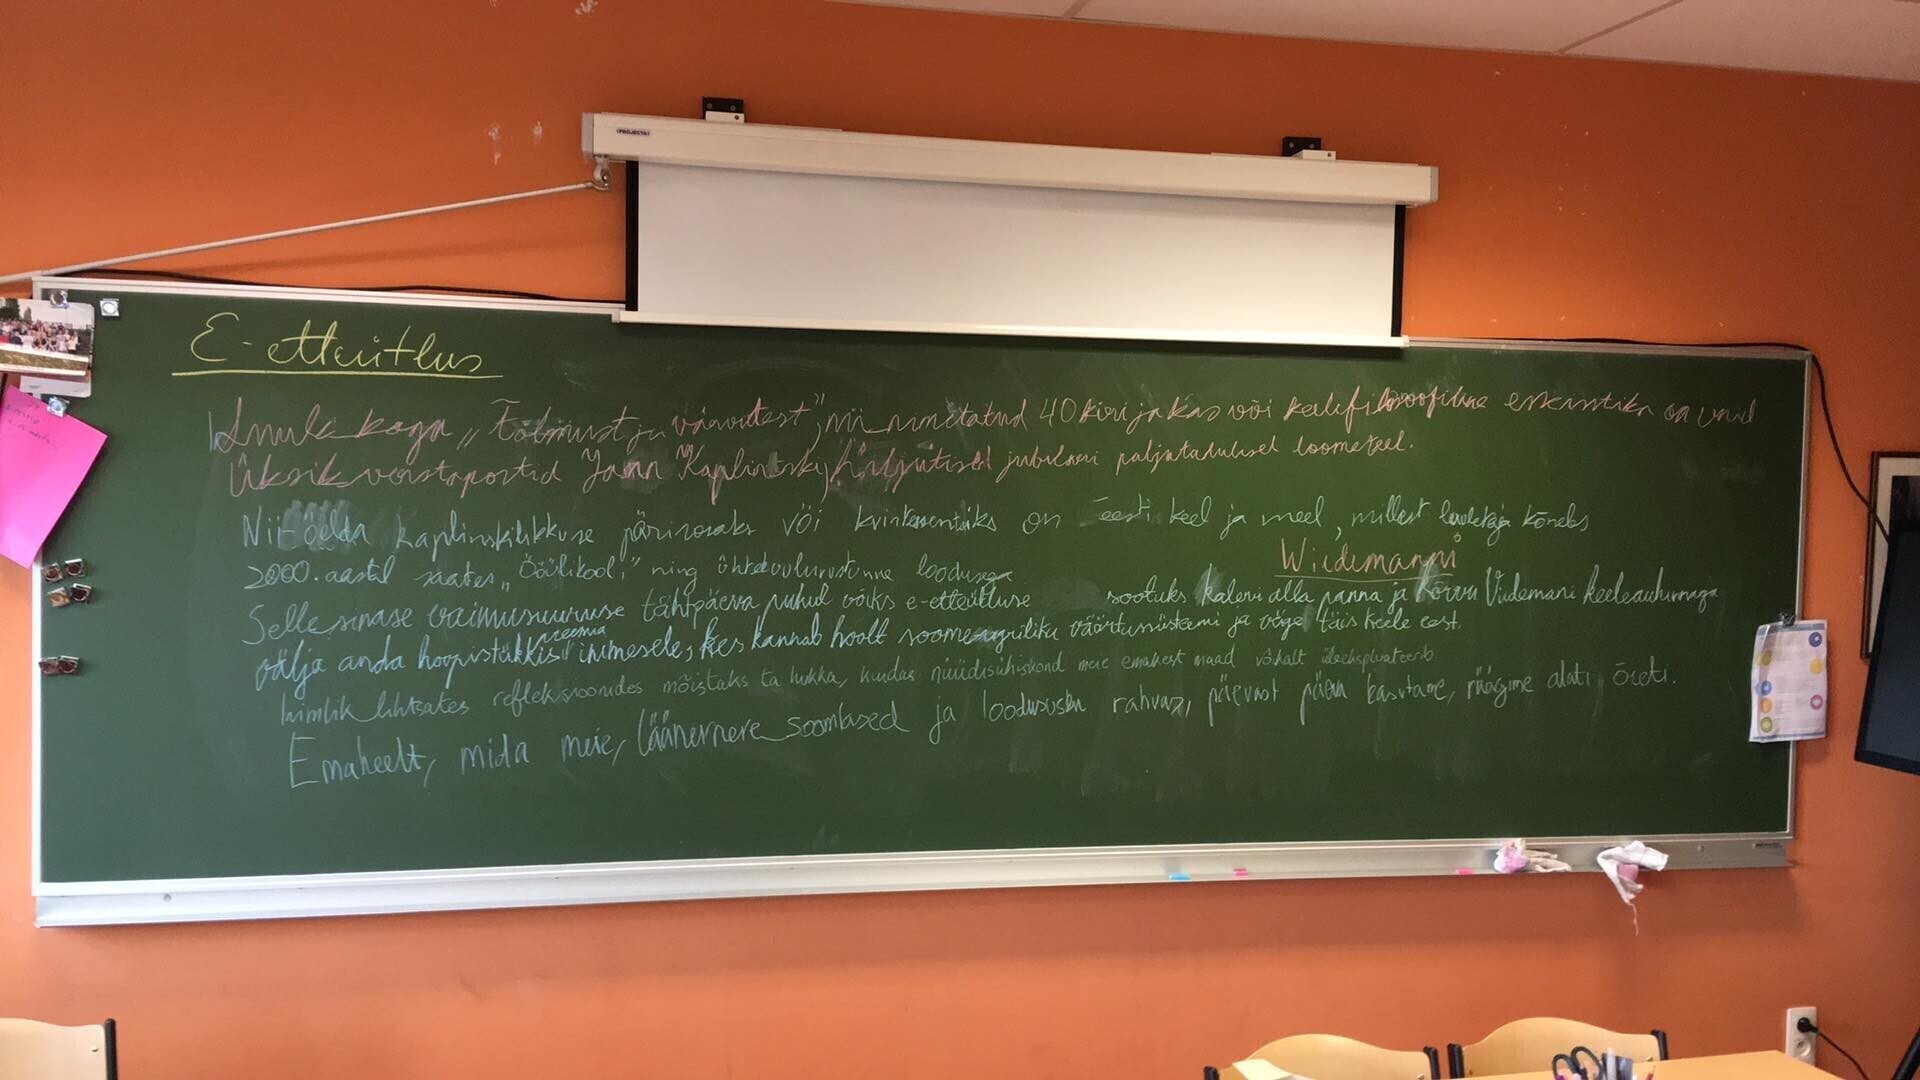 PROJECTA
E-etteütlus
Luulekogu „Tolmust ja värvidest", nii nimetatud 40 kirja kas või keelefilosoofiline on vaid
Üksik verstapostid Jaan Kaplinski juubilari paljutahulisel loometeel.
Nii-öelda kaplinskilikkuse pärisosaks või kvintessentsiks on eesti keel ja meel, millest luuletaja kõneles
Wiidemanni
2000. aastal saates „Ööülikool," ning ühtekuuluvustunne loodusega
Sellesinase vaimusuuruse tähtpäeva puhul võiks e-etteütluse sootuks kalevi alla panna ja kõrvu Viidemani keeleauhinnaga
preemia
välja anda hoopistükkis inimesele, kes kannab hoolt soome-ugriliku väärtussüsteemi ja väge täis keele eest.
lihtsates refleksioonides mõistaks ta hukka, kuidas nüüdisühiskond meie emakest maad võikalt
Emakeelt, mida meie, läänemere soomlased ja loodususku rahvas, päevast päeva kasutame, räägime alati õieti.